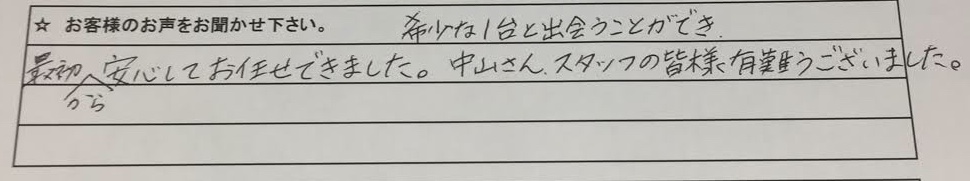 ☆ お客様のお声をお聞かせ下さい。 希少な1台と出会うことができ、
最初から安心してお任せできました。中山さん、スタッフの皆様、有難うございました。